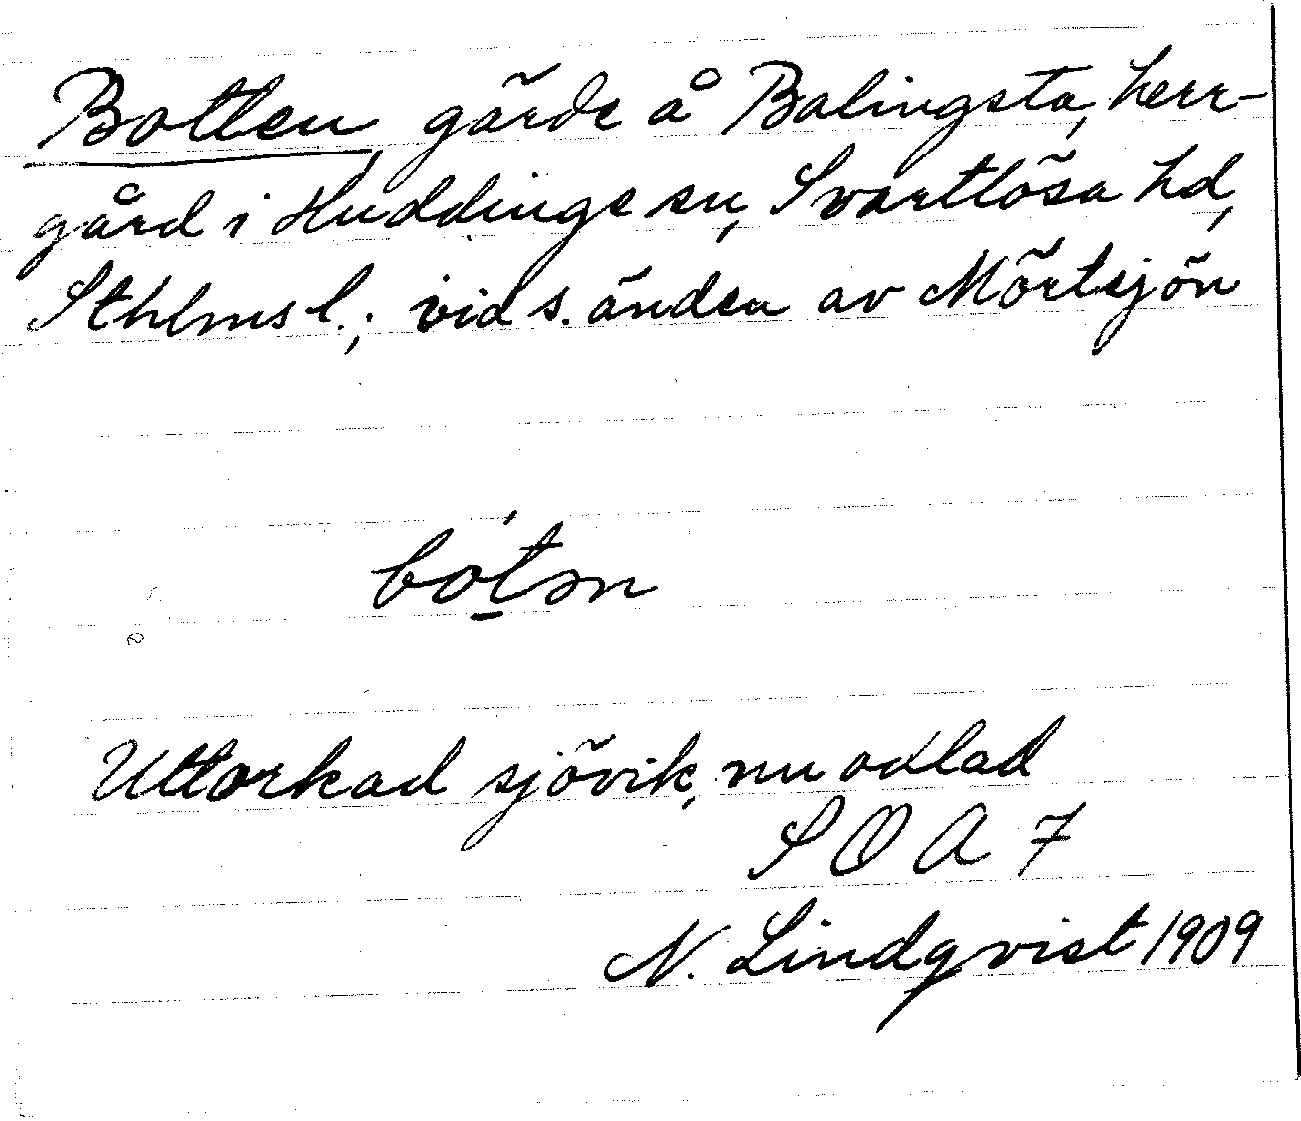 Botten, gärde å Balingsta, herr-
gård i Huddinge sn, Svartlösa hd,
Sthlms l.; vid s. ändan av Mörtsjön
bót̠ən
Uttorkad sjövik, nu odlad
SOA 7
N. Lindqvist 1909